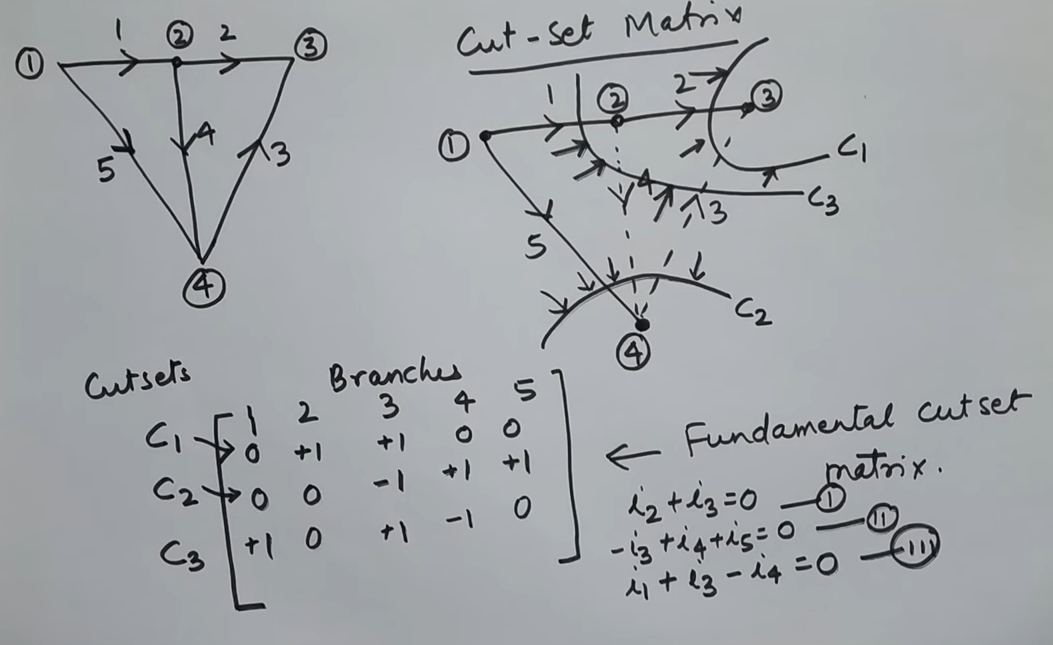 Cut-set Matrix
① 1 ② 2 ③
5 4 3
④
① 1 ② 2 ③
C₁
4 3 C₃
5
C₂
④
Cutsets Branches
1 2 3 4 5
C₁ 0 +1 +1 0 0
C₂ 0 0 -1 +1 +1
C₃ +1 0 +1 -1 0
← Fundamental cutset
matrix.
i₂+i₃=0 — Ⓘ
-i₃+i₄+i₅=0 — (II)
i₁+i₃-i₄=0 — (III)